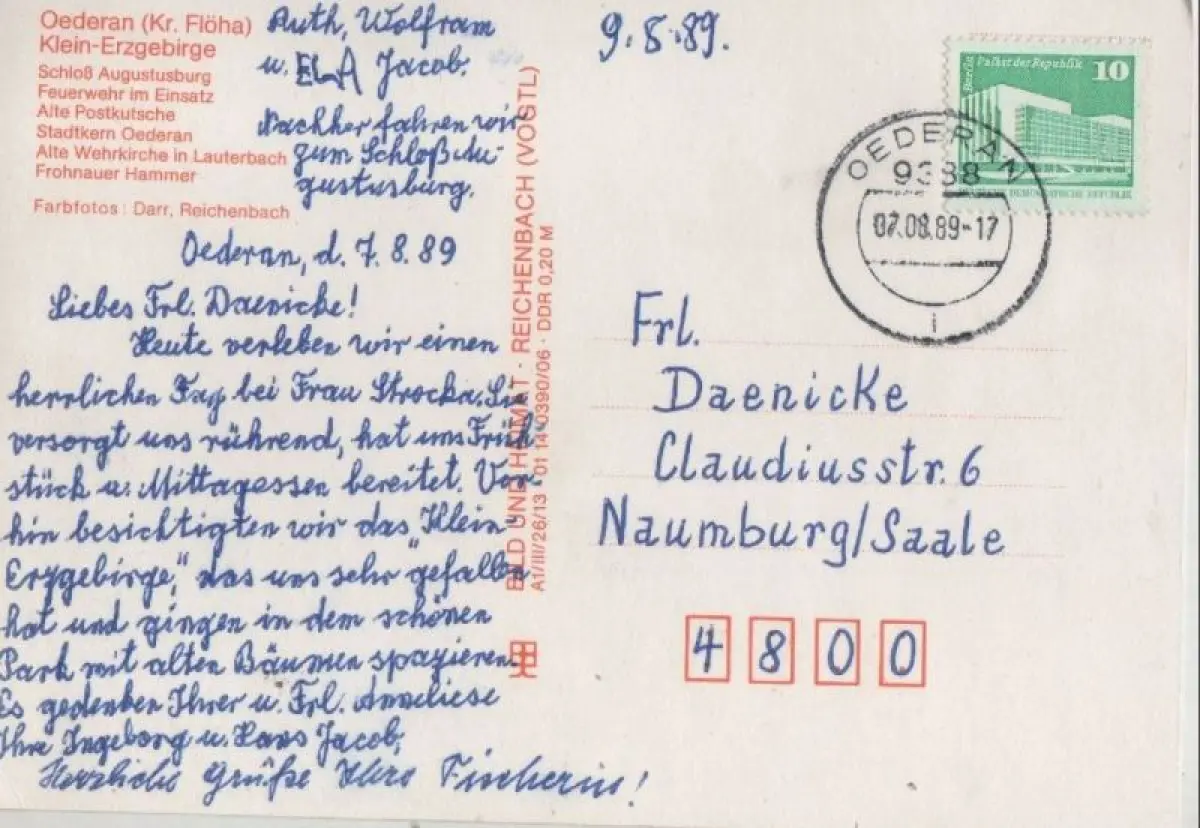 Oederan (Kr. Flöha)
Klein-Erzgebirge
Schloß Augustusburg
Feuerwehr im Einsatz
Alte Postkutsche
Stadtkern Oederan
Alte Wehrkirche in Lauterbach
Frohnauer Hammer
Farbfotos: Darr, Reichenbach
Ruth, Wolfram
u. ELA Jacob.
Nachher fahren wir
zum Schloß Au-
gustusburg.
Oederan, d. 7. 8. 89
Liebes Frl. Daenicke!
Heute verleben wir einen
herrlichen Tag bei Frau Strocka. Sie
versorgt uns rührend, hat uns Früh-
stück u. Mittagessen bereitet. Vor-
hin besichtigten wir das "Klein-
Erzgebirge," das uns sehr gefallen
hat und gingen in dem schönen
Park mit alten Bäumen spazieren.
Es gedenken Ihrer u. Frl. Anneliese
Ihre Ingeborg u. Hans Jacob.
Herzliche Grüße Ihre Fischerin!
BILD UND HEIMAT · REICHENBACH (VOGTL)
A1/III/26/13 01 14 0390/06 · DDR 0,20 M
9. 8. 89.
Berlin Palast der Republik 10
DEMOKRATISCHE REPUBLIK
OEDERAN
9388
07.08.89-17
i
Frl.
Daenicke
Claudiusstr. 6
Naumburg/Saale
4800